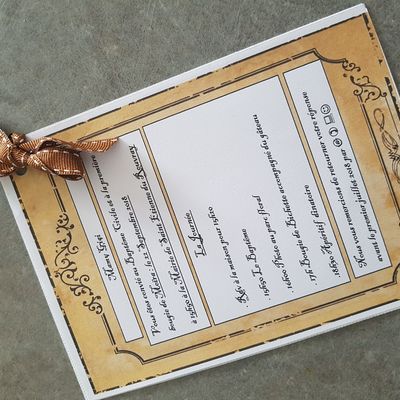 Mamy Gigi
Vous êtes convié au Baptême Civile et à la première
bougie de Maïra : le 22 Septembre 2018
à 15h30 à la Mairie de Saint Etienne du Rouvray
La Journée
Rdv à la maison pour 15h00
. 15h30 Le Baptême
. 16h00 Photo au parc floral
. 17h Bougie de Bichette accompagné du gâteau
. 18h30 Apéritif dinatoire
Nous vous remercions de retourner votre réponse
avant le premier juillet 2018 par